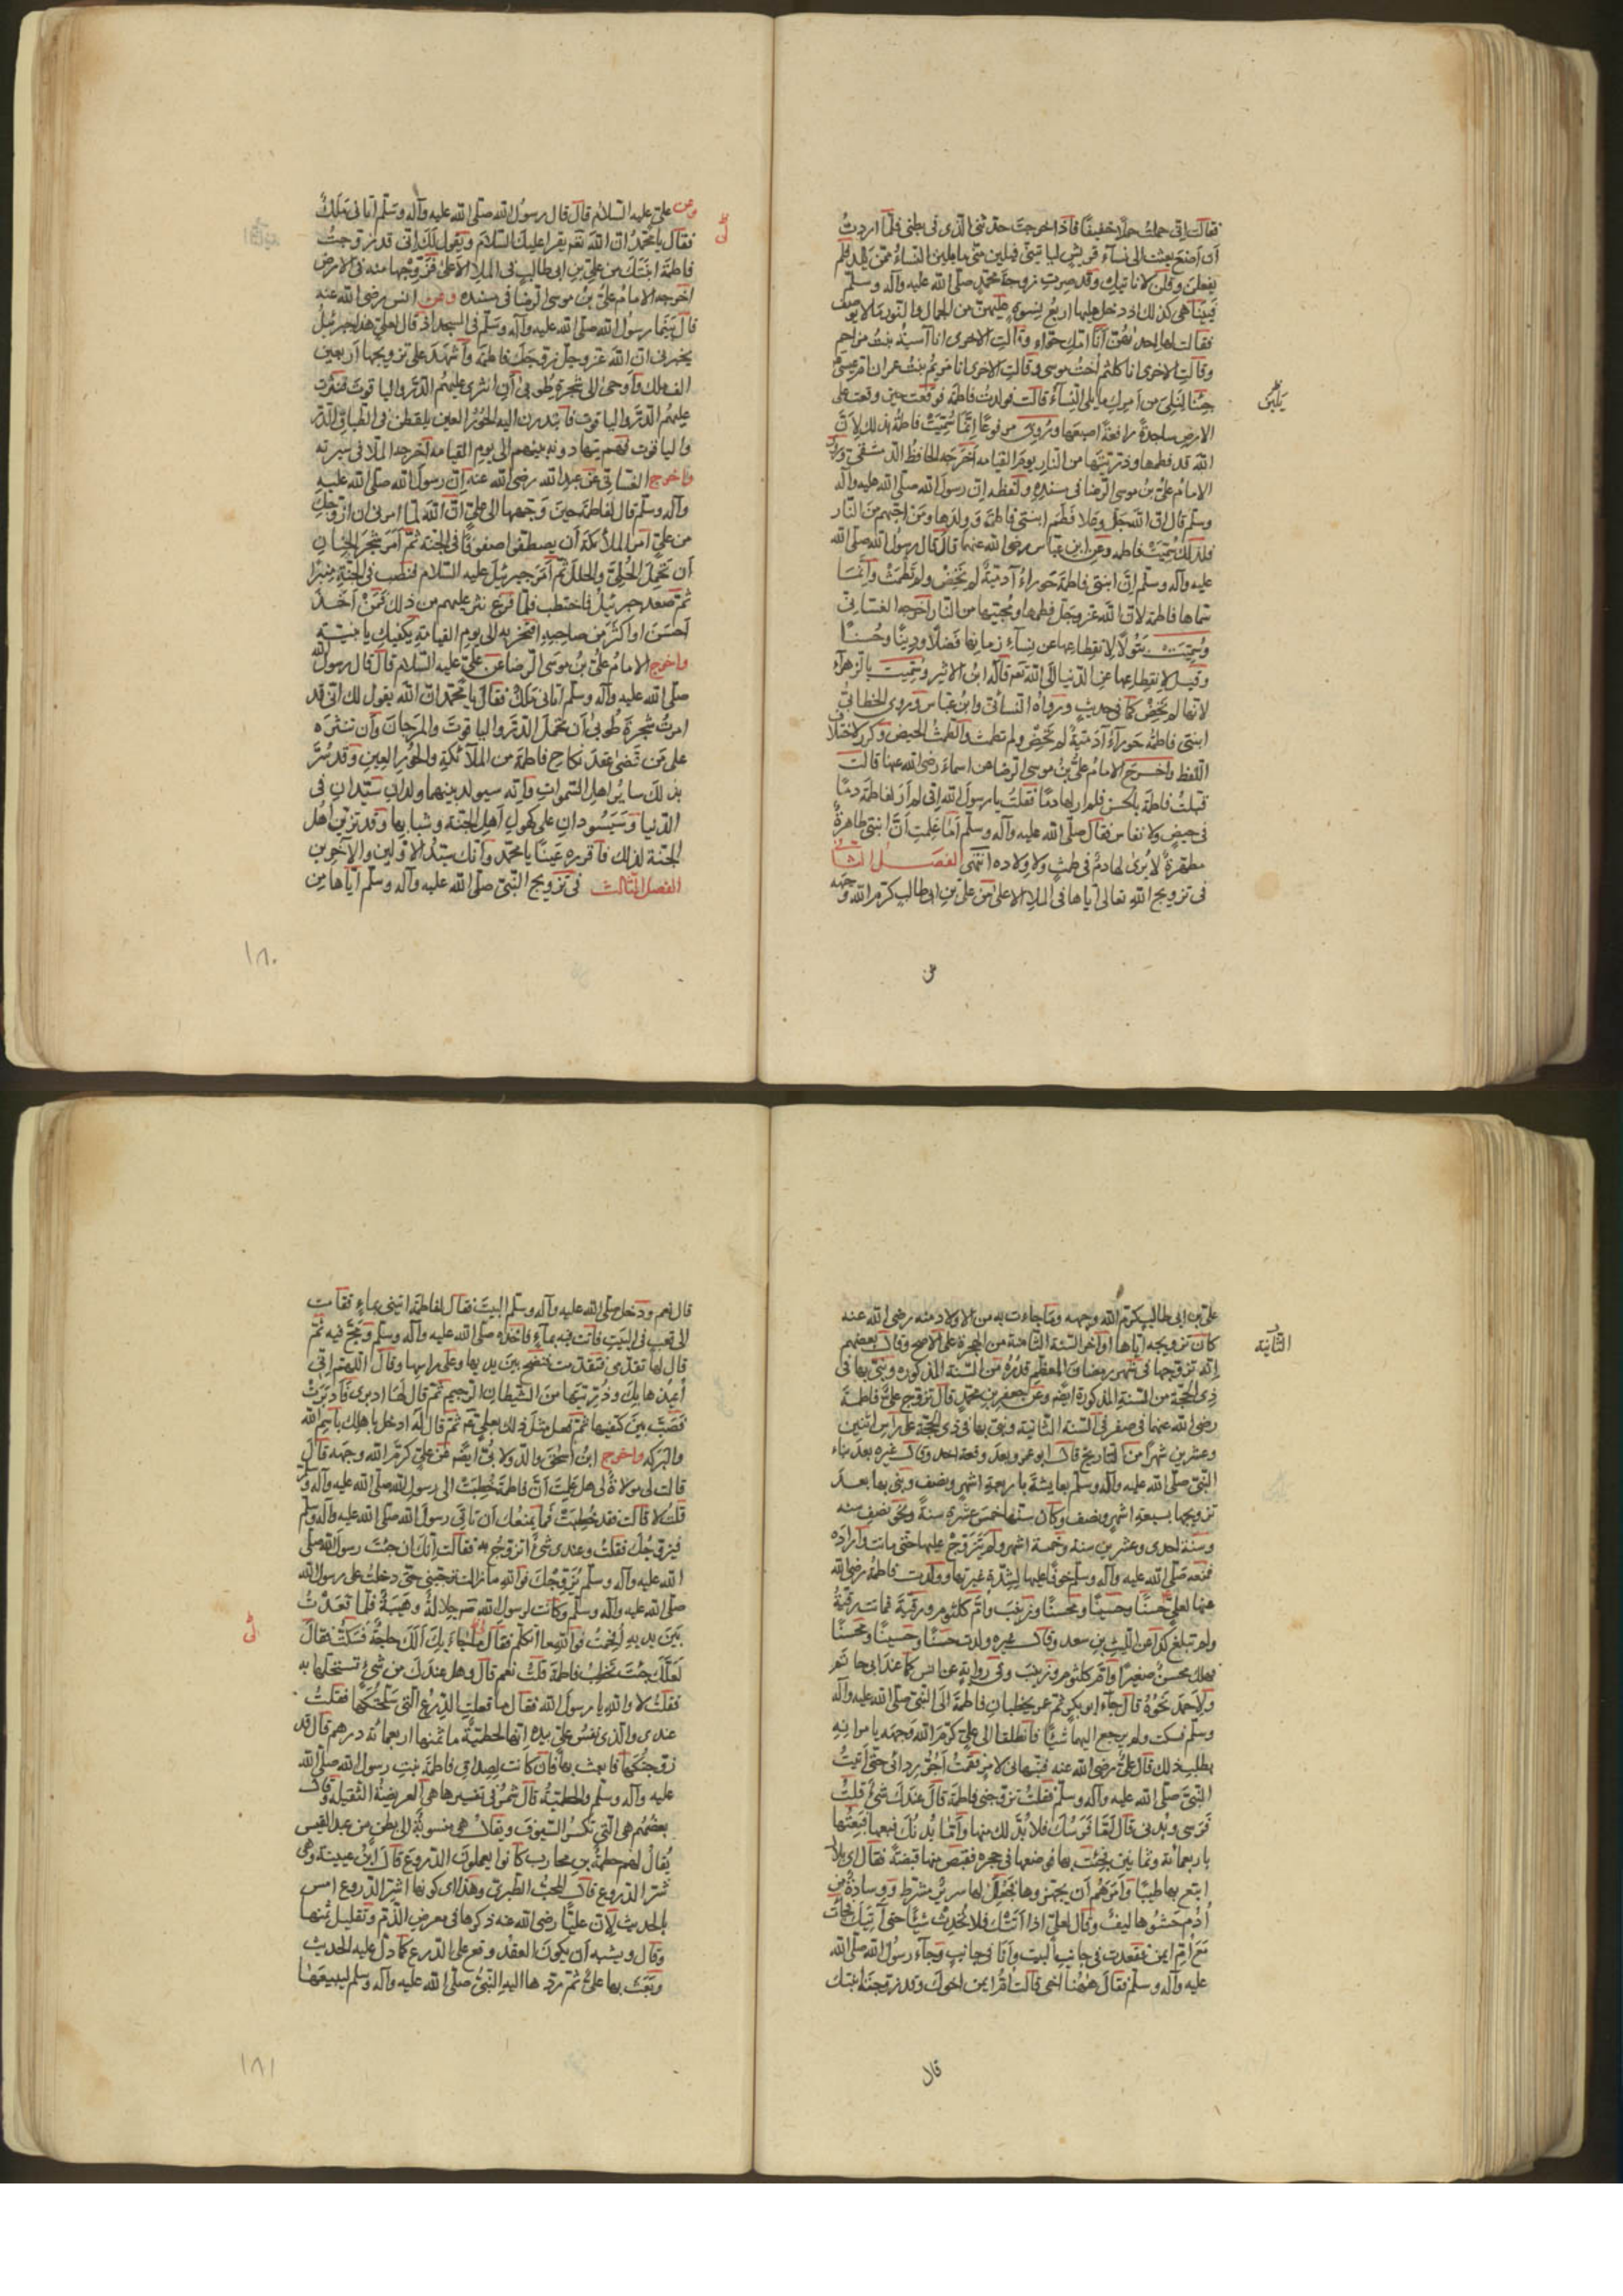 فقالت اني حملت حملا خفيفا فاذا خرجت حدثني الذي في بطني فلما اردت
أن أضع بعثت الى نسآء قريش لياتيني فيلين مني ما يلين النسآء ممن يلد فلم
يفعلن وقلن لا ناتيك وقد صرت زوجة محمد صلى الله عليه وآله وسلم
فبينا هي كذلك اذ دخل عليها اربع نسوة عليهن من الجمال والنور ما لا يوصف
فقالت لها احداهن أنا امك حواء وقالت الاخرى انا آسية بنت مزاحم
وقالت الاخرى انا كلثم اخت موسى وقالت الاخرى انا مريم بنت عمران ام عيسى
جئنا لنلي من أمرك ما يلي النسآء قالت فولدت فاطمة فوقعت حين وقعت على
يلين
الارض ساجدة رافعة اصبعها وروي مرفوعا انما سميت فاطمة بذلك لان
الله قد فطمها وذريتها من النار يوم القيامه أخرجه الحافظ الدمشقي وروى
الامام علي بن موسى الرضا في مسنده ولفظه ان رسول الله صلى الله عليه وآله
وسلم قال ان الله جل وعلا فطم ابنتي فاطمة وولدها ومن احبهم من النار
فلذلك سميت فاطمه وعن ابن عباس رضى الله عنهما قال قال رسول الله صلى الله
عليه وآله وسلم إن ابنتي فاطمة حوراء آدمية لم تحض ولم تطمث وانما
سماها فاطمة لان الله عز وجل فطمها ومحبيها من النار اخرجه الغساني
وسميت بتولا لانقطاعها عن نسآء زمانها فضلا ودينا وحسنا
وقيل لانقطاعها عن الدنيا الى الله تعه قاله ابن الاثير وسميت بالزهرآء
لانها لم تحض كما في حديث ورواه النسائي وابن عباس وروى الخطابي
ابنتي فاطمة حورآء آدمية لم تحض ولم تطمث والطمث الحيض وكرر لاختلاف
اللفظ واخرج الامام علي بن موسى الرضا عن اسماء رضى الله عنها قالت
قبلت فاطمة بالحسن فلم ار لها دما فقلت يا رسول الله اني لم أر لفاطمة دما
في حيض ولا نفاس فقال صلى الله عليه وآله وسلم أما علمت أن ابنتي طاهرة
مطهرة لا يرى لها دم في طمث ولا ولاده انتهى الفصل الثاني
في تزويج الله تعالى اياها في الملا الاعلى من علي بن ابي طالب كرم الله وجهه
عن
وعن علي عليه السلام قال قال رسول الله صلى الله عليه وآله وسلم أتاني ملك
فقال يا محمد ان الله تعه يقرا عليك السلام ويقول لك اني قد زوجت
فاطمة ابنتك من علي بن ابي طالب في الملا الاعلى فزوجها منه في الارض
اخرجه الامام علي بن موسى الرضا في مسنده وعن انس رضى الله عنه
قال بينما رسول الله صلى الله عليه وآله وسلم في المسجد اذ قال لعلي هذا جبرئيل
يخبرني ان الله عز وجل زوجك فاطمة وأشهد على تزويجها أربعين
الف ملك وأوحى الى شجرة طوبى أن انثري عليهم الدر والياقوت فنثرت
عليهم الدر والياقوت فابتدرت اليه الحور العين يلتقطن في اطباق الدر
والياقوت فهم يتهادونه بينهم الى يوم القيامه أخرجه الملا في سيرته
واخرج الغساني عن عبد الله رضى الله عنه ان رسول الله صلى الله عليه
وآله وسلم قال لفاطمة حين وجهها الى علي ان الله لما امرني ان ازوجك
من علي امر الملائكة أن يصطفوا صفوفا في الجنة ثم أمر شجر الجنان
أن تحمل الحلي والحلل ثم أمر جبرئيل عليه السلام فنصب في الجنة منبرا
ثم صعد جبرئيل فاختطب فلما فرغ نثر عليهم من ذلك فمن أخذ
أحسن او اكثر من صاحبه افتخر به الى يوم القيامة يكفيك يا بنيته
واخرج الامام علي بن موسى الرضا عن علي عليه السلام قال قال رسول الله
صلى الله عليه وآله وسلم أتاني ملك فقال يا محمد ان الله يقول لك اني قد
امرت شجرة طوبى أن تحمل الدر والياقوت والمرجان وأن تنثره
على من قضى عقد نكاح فاطمة من الملآئكة والحور العين وقد سر
بذلك سائر اهل السموات وانه سيولد بينهما ولدان سيدان في
الدنيا وسيسودان على كهول أهل الجنة وشبابها وقد تزين أهل
الجنة لذلك فاقرره عينا يا محمد وأنك سيد الاولين والآخرين
الفصل الثالث في تزويج النبي صلى الله عليه وآله وسلم أياها من
١٨٠
علي بن ابي طالب كرم الله وجهه وما جاءت به من الاولاد منه رضى الله عنه
كان تزويجه اياها اواخر السنة الثامنة من الهجرة على الاصح وقال بعضهم
الثانية
انه تزوجها في شهر رمضان المعظم قدره من السنة المذكوره وبنى بها في
ذي الحجة من السنة المذكورة ايضه وعن جعفر بن محمد قال تزوج علي فاطمة
رضى الله عنهما في صفر في السنة الثانية وبنى بها في ذي الحجة على رأس اثنين
وعشرين شهرا من التاريخ قال ابو عمر وبعد وقعة احد وقال غيره بعد بناء
النبي صلى الله عليه وآله وسلم بعايشة باربعة اشهر ونصف وبنى بها بعد
تزويجها بسبعة اشهر ونصف وكان سنها خمس عشرة سنة ونحو نصف سنه
وسنة احدى وعشرين سنه وخمسة اشهر ولم يتزوج عليها حتى ماتت وأراده
فمنعه صلى الله عليه وآله وسلم خوفا عليها لشدة غيرتها وولدت فاطمة رضى الله
عنها لعلي حسنا وحسينا ومحسنا وزينب وام كلثوم ورقية فماتت رقية
ولم تبلغ كذا عن الليث بن سعد وقال غيره ولدت حسنا وحسينا ومحسنا
فهلك محسن صغيرا وام كلثوم وزينب وفي رواية عن انس كما عند ابي حاتم
ولاحمد نحوه قال جآء ابو بكر ثم عمر يخطبان فاطمة الى النبي صلى الله عليه وآله
وسلم فسكت ولم يرجع اليهما شيئا فانطلقا الى علي كرم الله وجهه يامرانه
بطلب ذلك قال علي رضى الله عنه فنبهاني لامر فقمت أجر ردائي حتى أتيت
النبي صلى الله عليه وآله وسلم فقلت تزوجني فاطمة قال عندك شئ قلت
فرسي وبدني قال أما فرسك فلا بد لك منها وأما بدنك فبعها فبعتها
باربعمائة وثمانين فجئت بها فوضعها في حجره فقبض منها قبضة فقال اي بلال
ابتع بها طيبا وأمرهم أن يجهزوها فجعل لها سرير مشرط ووسادة من
أدم حشوها ليف وقال لعلي اذا أتتك فلا تحدث شيئا حتى آتيك فجائت
مع ام ايمن فقعدت في جانب البيت وأنا في جانب وجآء رسول الله صلى الله
عليه وآله وسلم فقال ههنا اخي قالت ام ايمن اخوك وقد زوجته ابنتك
قال
قال نعم ودخل صلى الله عليه وآله وسلم البيت فقال لفاطمة ايتيني بماء فقامت
الى قعب في البيت فاتت فيه بمآء فاخذه صلى الله عليه وآله وسلم ومج فيه ثم
قال لها تقدمي فتقدمت فنضح بين يديها وعلى راسها وقال اللهم اني
أعيذها بك وذريتها من الشيطان الرجيم ثم قال لها ادبري فأدبرت
فصب بين كتفيها ثم فعل مثل ذلك بعلي ثم قال له ادخل باهلك باسم الله
والبركه واخرج ابن اسحق والدولابي ايضه عن علي كرم الله وجهه قال
قالت لي مولاة لي هل علمت أن فاطمة خطبت الى رسول الله صلى الله عليه وآله وسلم
قلت لا قالت فقد خطبت فما يمنعك أن تاتي رسول الله صلى الله عليه وآله وسلم
فيزوجك فقلت وعندي شئ اتزوج به فقالت إنك ان جئت رسول الله صلى
الله عليه وآله وسلم يزوجك فوالله ما زالت ترجيني حتى دخلت على رسول الله
صلى الله عليه وآله وسلم وكانت لرسول الله صلعم جلالة وهيبة فلما قعدت
بين يديه افحمت فوالله ما اتكلم فقال ما جآء بك ألك حاجة فسكت فقال
لعلك جئت تخطب فاطمة قلت نعم قال وهل عندك من شئ تستحلها به
فقلت لا والله يا رسول الله فقال ما فعلت الدرع التي سلحتكها فقلت
عندي والذي نفس علي بيده انها لحطمية ما ثمنها اربعمائه درهم قال قد
زوجتكها فابعث بها فان كانت لصداق فاطمة بنت رسول الله صلى الله
عليه وآله وسلم والحطمية قال شمر في تفسيرها هي العريضة الثقيلة وقال
بعضهم هي التي تكسر السيوف ويقال هي منسوبة الى بطن من عبد القيس
يقال لهم حطمة بن محارب كانوا يعملون الدروع قال ابن عيينة وهي
شر الدروع قال المحب الطبري وهذا اي كونها اشر الدروع امس
بالحديث لان عليا رضى الله عنه ذكرها في معرض الذم وتقليل ثمنها
وقال ويشبه أن يكون العقد وقع على الدرع كما دل عليه الحديث
وبعث بها علي ثم رد ها اليه النبي صلى الله عليه وآله وسلم ليبيعها
١٨١